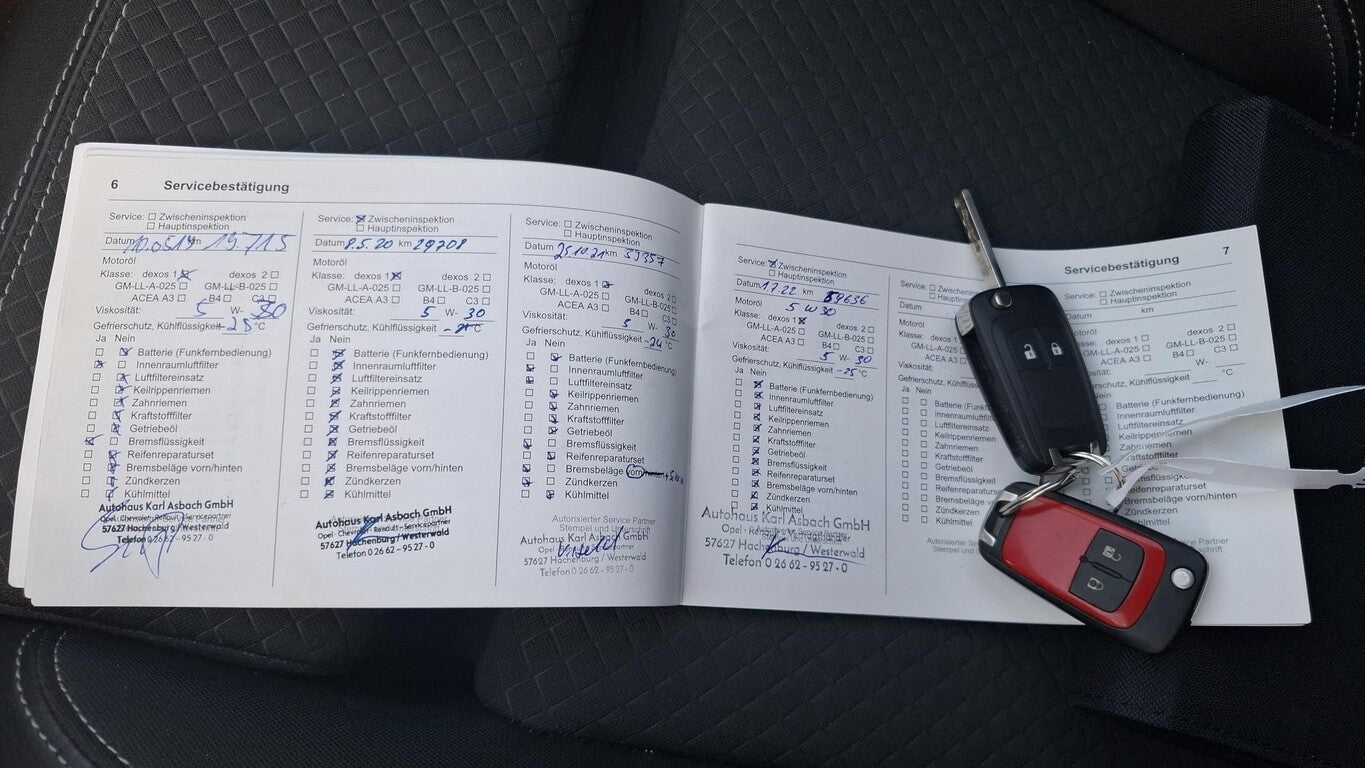 6 Servicebestätigung
Service: ☐ Zwischeninspektion
☐ Hauptinspektion
Datum 10.0519 km 19715
Motoröl
Klasse: dexos 1 ☒ dexos 2 ☐
GM-LL-A-025 ☐ GM-LL-B-025 ☐
ACEA A3 ☐ B4 ☐ C3 ☐
Viskosität: 5 W- 30
Gefrierschutz, Kühlflüssigkeit -25 °C
Ja Nein
☐ ☒ Batterie (Funkfernbedienung)
☒ ☐ Innenraumluftfilter
☐ ☒ Luftfiltereinsatz
☐ ☒ Keilrippenriemen
☐ ☒ Zahnriemen
☐ ☒ Kraftstofffilter
☐ ☒ Getriebeöl
☒ ☐ Bremsflüssigkeit
☐ ☒ Reifenreparaturset
☐ ☒ Bremsbeläge vorn/hinten
☐ ☒ Zündkerzen
☐ ☒ Kühlmittel
Autohaus Karl Asbach GmbH
Opel - Chevrolet - Renault - Servicepartner
57627 Hachenburg / Westerwald
Telefon 0 26 62 - 95 27 - 0
Service: ☒ Zwischeninspektion
☐ Hauptinspektion
Datum 8.5.20 km 29708
Motoröl
Klasse: dexos 1 ☒ dexos 2 ☐
GM-LL-A-025 ☐ GM-LL-B-025 ☐
ACEA A3 ☐ B4 ☐ C3 ☐
Viskosität: 5 W- 30
Gefrierschutz, Kühlflüssigkeit °C
Ja Nein
☐ ☒ Batterie (Funkfernbedienung)
☐ ☒ Innenraumluftfilter
☐ ☒ Luftfiltereinsatz
☐ ☒ Keilrippenriemen
☐ ☒ Zahnriemen
☐ ☒ Kraftstofffilter
☐ ☒ Getriebeöl
☐ ☒ Bremsflüssigkeit
☐ ☒ Reifenreparaturset
☐ ☒ Bremsbeläge vorn/hinten
☐ ☒ Zündkerzen
☐ ☒ Kühlmittel
Autohaus Karl Asbach GmbH
Opel - Chevrolet - Renault - Servicepartner
57627 Hachenburg / Westerwald
Telefon 0 26 62 - 95 27 - 0
Service: ☐ Zwischeninspektion
☐ Hauptinspektion
Datum 25.10.21 km 53357
Motoröl
Klasse: dexos 1 ☒ dexos 2 ☐
GM-LL-A-025 ☐ GM-LL-B-025 ☐
ACEA A3 ☐ B4 ☐ C3 ☐
Viskosität: 5 W- 30
Gefrierschutz, Kühlflüssigkeit -24 °C
Ja Nein
☐ ☒ Batterie (Funkfernbedienung)
☒ ☐ Innenraumluftfilter
☒ ☐ Luftfiltereinsatz
☐ ☒ Keilrippenriemen
☐ ☒ Zahnriemen
☐ ☒ Kraftstofffilter
☐ ☒ Getriebeöl
☒ ☐ Bremsflüssigkeit
☐ ☒ Reifenreparaturset
☒ ☐ Bremsbeläge vorn/hinten
☒ ☐ Zündkerzen
☐ ☒ Kühlmittel
Autorisierter Service Partner
Stempel und Unterschrift
Autohaus Karl Asbach GmbH
57627 Hachenburg / Westerwald
Telefon 0 26 62 - 95 27 - 0
7 Servicebestätigung
Service: ☒ Zwischeninspektion
☐ Hauptinspektion
Datum 17.22 km 69636
Motoröl 5 W 30
Klasse: dexos 1 ☒ dexos 2 ☐
GM-LL-A-025 ☐ GM-LL-B-025 ☐
ACEA A3 ☐ B4 ☐ C3 ☐
Viskosität: 5 W- 30
Gefrierschutz, Kühlflüssigkeit -25 °C
Ja Nein
☐ ☒ Batterie (Funkfernbedienung)
☐ ☒ Innenraumluftfilter
☐ ☒ Luftfiltereinsatz
☐ ☒ Keilrippenriemen
☐ ☒ Zahnriemen
☐ ☒ Kraftstofffilter
☐ ☒ Getriebeöl
☐ ☒ Bremsflüssigkeit
☐ ☒ Reifenreparaturset
☐ ☒ Bremsbeläge vorn/hinten
☐ ☒ Zündkerzen
☐ ☒ Kühlmittel
Autohaus Karl Asbach GmbH
57627 Hachenburg / Westerwald
Telefon 0 26 62 - 95 27 - 0
Service: ☐
Datum
Motoröl
Klasse:
GM-LL-A-025
ACEA A3
Viskosität:
Gefrierschutz, Kühlflüssigkeit
Ja Nein
☐ ☐ Batterie
☐ ☐ Innenraumluftfilter
☐ ☐ Luftfiltereinsatz
☐ ☐ Keilrippenriemen
☐ ☐ Zahnriemen
☐ ☐ Kraftstofffilter
☐ ☐ Getriebeöl
☐ ☐ Bremsflüssigkeit
☐ ☐ Reifenreparaturset
☐ ☐ Bremsbeläge
☐ ☐ Zündkerzen
☐ ☐ Kühlmittel
Zwischeninspektion
Hauptinspektion
km
dexos 2 ☐
GM-LL-B-025 ☐
B4 ☐ C3 ☐
W-
Kühlflüssigkeit °C
Batterie (Funkfernbedienung)
Innenraumluftfilter
Luftfiltereinsatz
Keilrippenriemen
Zahnriemen